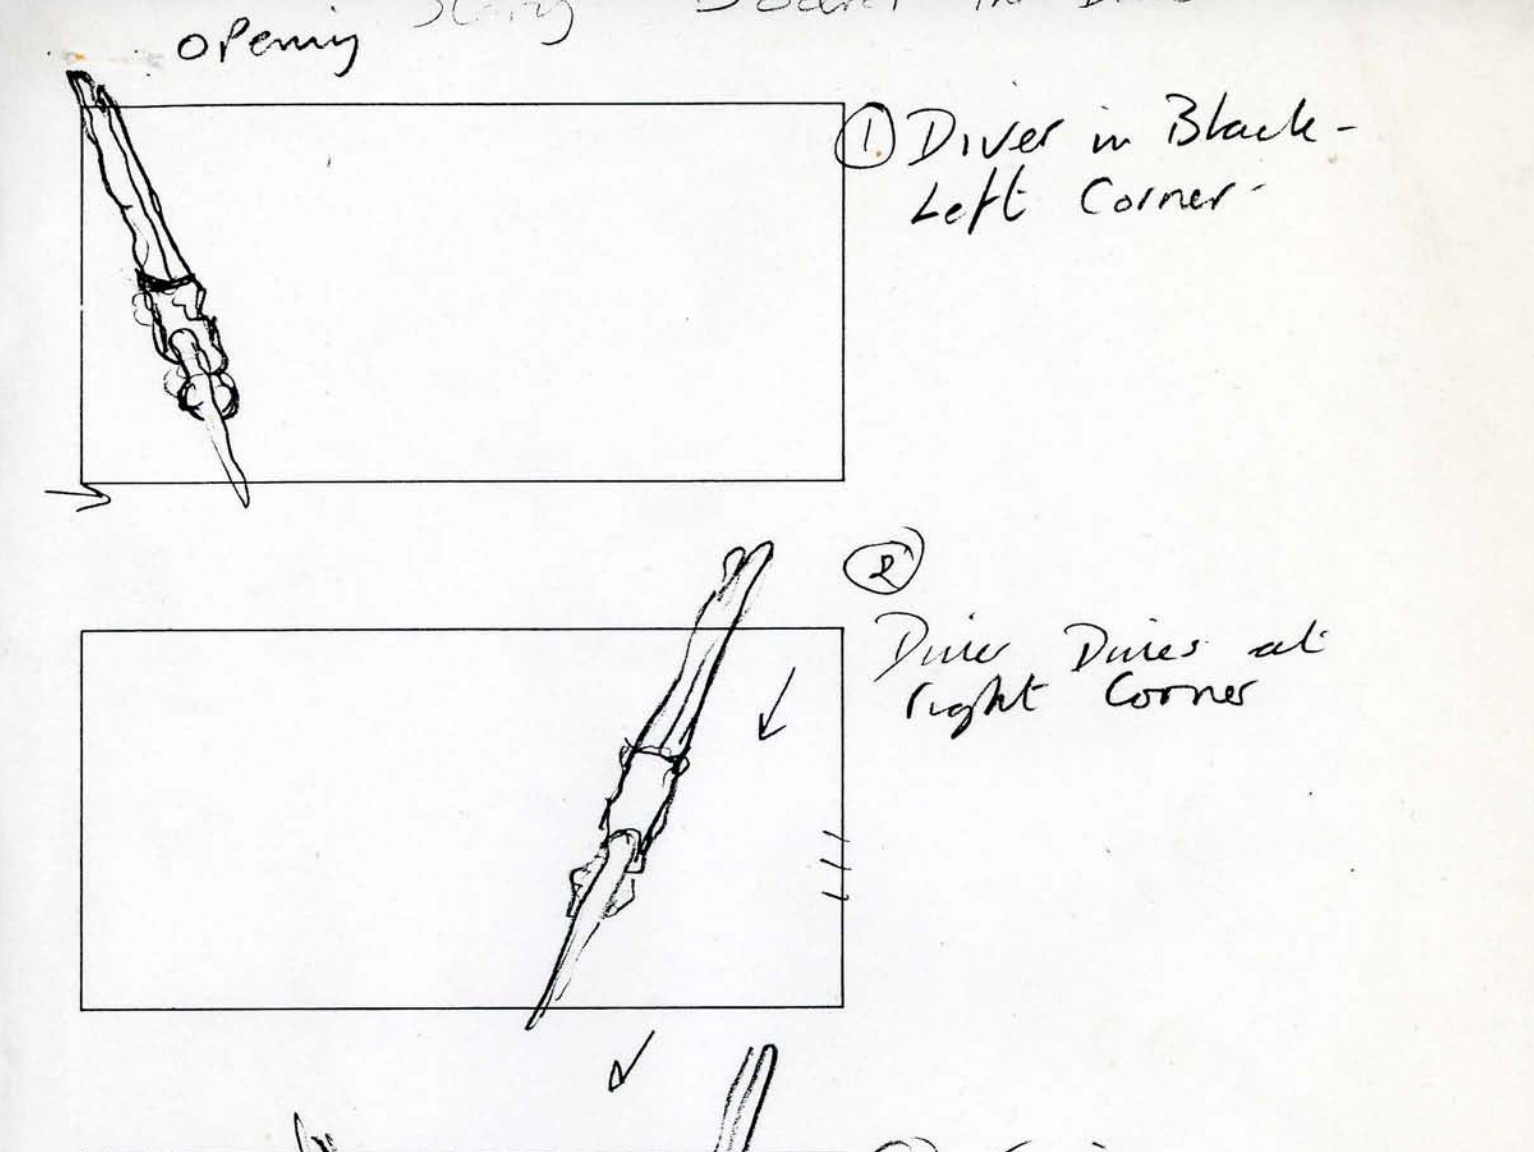 Story
opening
① Diver in Black -
Left Corner -
②
Diver Dives at
right Corner